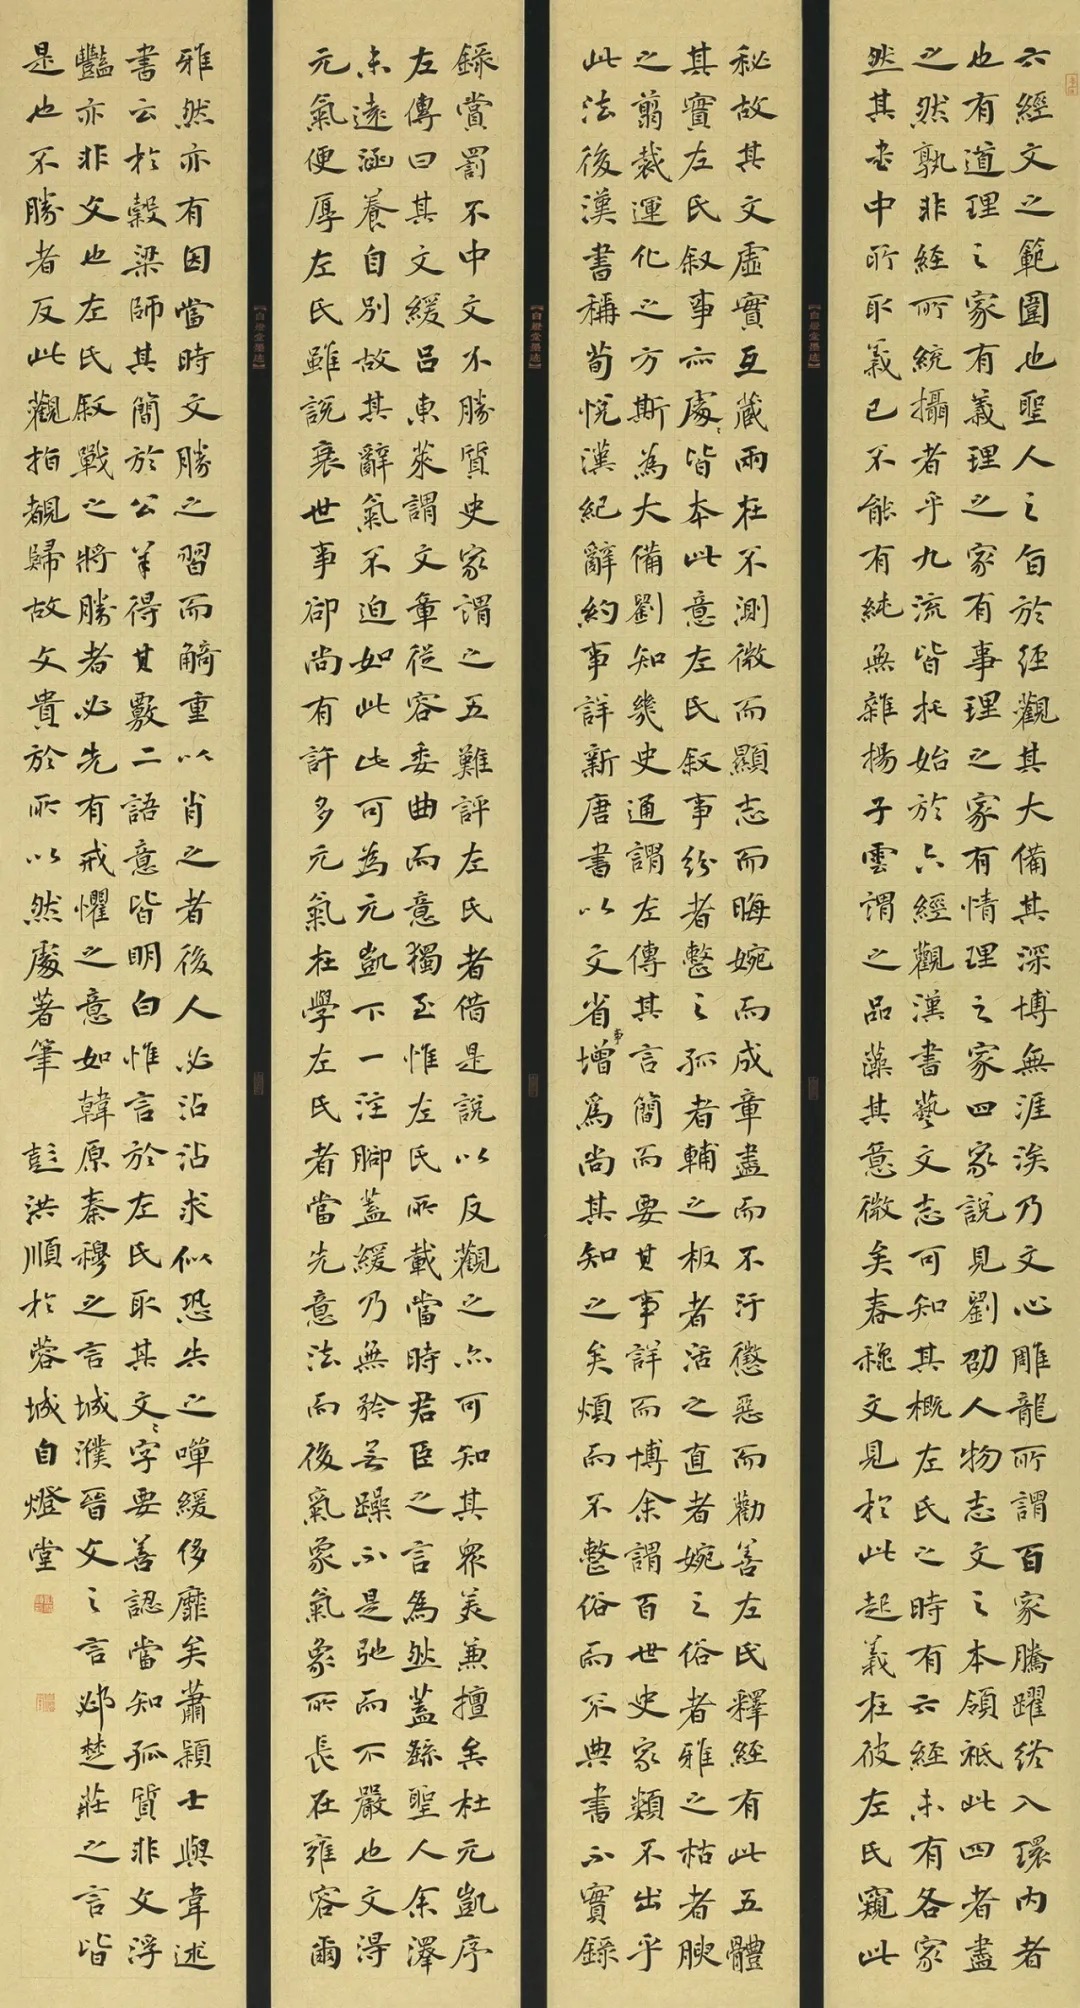 六經文之範圍也聖人之旨於經觀其大備其深博無涯涘乃文心雕龍所謂百家騰躍終入環內者
也有道理之家有義理之家有事理之家有情理之家四家說見劉劭人物志文之本領祗此四者盡
之然孰非經所統攝者乎九流皆托始於六經觀漢書藝文志可知其概左氏之時有六經未有各家
然其書中所取義已不能有純無雜揚子雲謂之品藻其意微矣春秋文見於此起義在彼左氏窺此
秘故其文虛實互藏兩在不測微而顯志而晦婉而成章盡而不汙懲惡而勸善左氏釋經有此五體
其實左氏叙事亦處〻皆本此意左氏叙事紛者整之孤者輔之板者活之直者婉之俗者雅之枯者腴
之翦裁運化之方斯為大備劉知幾史通謂左傳其言簡而要其事詳而博余謂百世史家類不出乎
此法後漢書稱荀悅漢紀辭約事詳新唐書以文省事增為尚其知之矣煩而不整俗而不典書不實錄
錄賞罰不中文不勝質史家謂之五難評左氏者借是說以反觀之亦可知其眾美兼擅矣杜元凱序
左傳曰其文緩呂東萊謂文章從容委曲而意獨至惟左氏所載當時君臣之言為然蓋繇聖人余澤
未遠涵養自別故其辭氣不迫如此此可為元凱下一注腳蓋緩乃無矜無躁不是弛而不嚴也文得
元氣便厚左氏雖說衰世事卻尚有許多元氣在學左氏者當先意法而後氣象氣象所長在雍容爾
雅然亦有因當時文勝之習而觭重以肖之者後人必沾沾求似恐失之嘽緩侈靡矣蕭穎士與韋述
書云於穀梁師其簡於公羊得其覈二語意皆明白惟言於左氏取其文〻字要善認當知孤質非文浮
豔亦非文也左氏叙戰之將勝者必先有戒懼之意如韓原秦穆之言城濮晉文之言邲楚莊之言皆
是也不勝者反此觀指覩歸故文貴於所以然處著筆 彭洪順於蓉城自燈堂
自燈堂墨迹
自燈堂墨迹
自燈堂墨迹